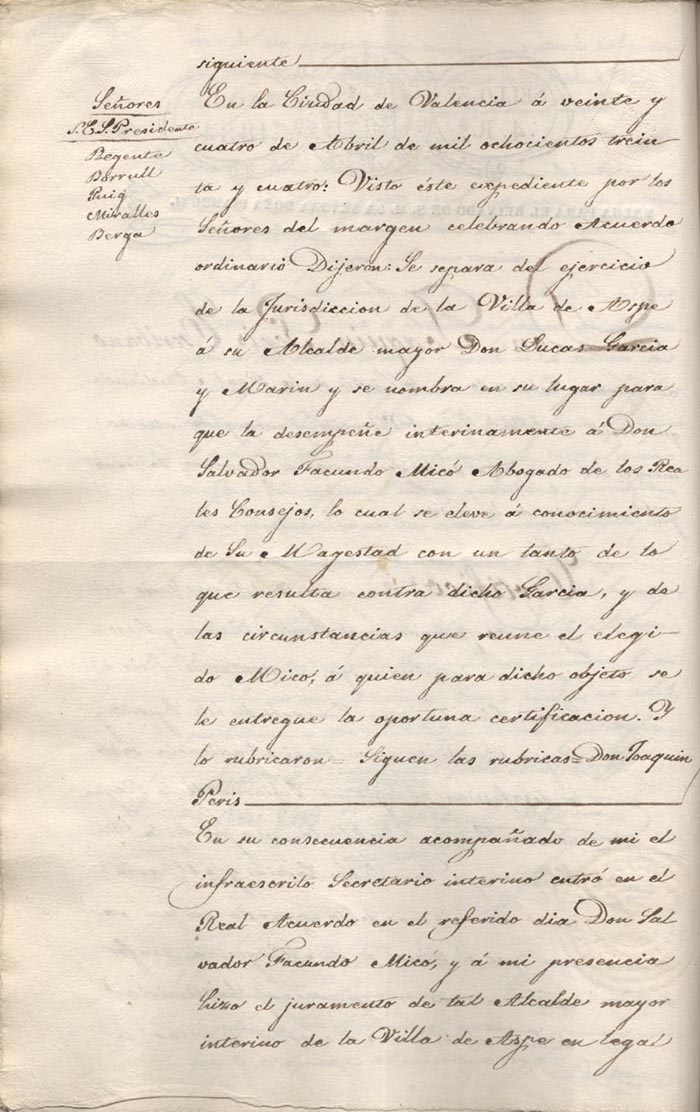 siguiente
Señores
S.E.S. Presidente
Regente
Borrull
Puig
Miralles
Berga
En la Ciudad de Valencia á veinte y
cuatro de Abril de mil ochocientos trein
ta y cuatro: Visto éste expediente por los
Señores del margen celebrando Acuerdo
ordinario Dijeron: Se separa del ejercicio
de la Jurisdiccion de la Villa de Aspe
á su Alcalde mayor Don Lucas Garcia
y Marin y se nombra en su lugar para
que la desempeñe interinamente á Don
Salvador Facundo Micó Abogado de los Rea
les Consejos, lo cual se eleve á conocimiento
de Su Magestad con un tanto de lo
que resulta contra dicho Garcia, y de
las circunstancias que reune el elegi-
do Micó, á quien para dicho objeto se
le entregue la oportuna certificacion. Y
lo rubricaron = Siguen las rubricas = Don Joaquin
Peris
En su consecuencia acompañado de mi el
infraescrito Secretario interino entró en el
Real Acuerdo en el referido dia Don Sal
vador Facundo Micó, y á mi presencia
hizo el juramento de tal Alcalde mayor
interino de la Villa de Aspe en legal